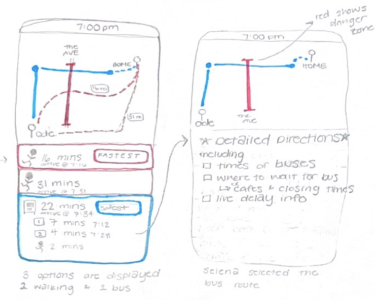 7:00pm
THE
AVE
HOME
16 min
31 min
Ode
16 mins
FASTEST
arrive @ 7:16
31 mins
arrive @ 7:31
22 mins
arrive @ 7:34
7 mins 7:12
4 mins 7:28
2 mins
3 options are displayed
2 walking & 1 bus
red shows
danger
zone
7:00pm
HOME
THE
AVE
Ode
* Detailed Directions *
including
times of buses
where to wait for bus
↳ cafes & closing times
live delay info
selected the
bus route